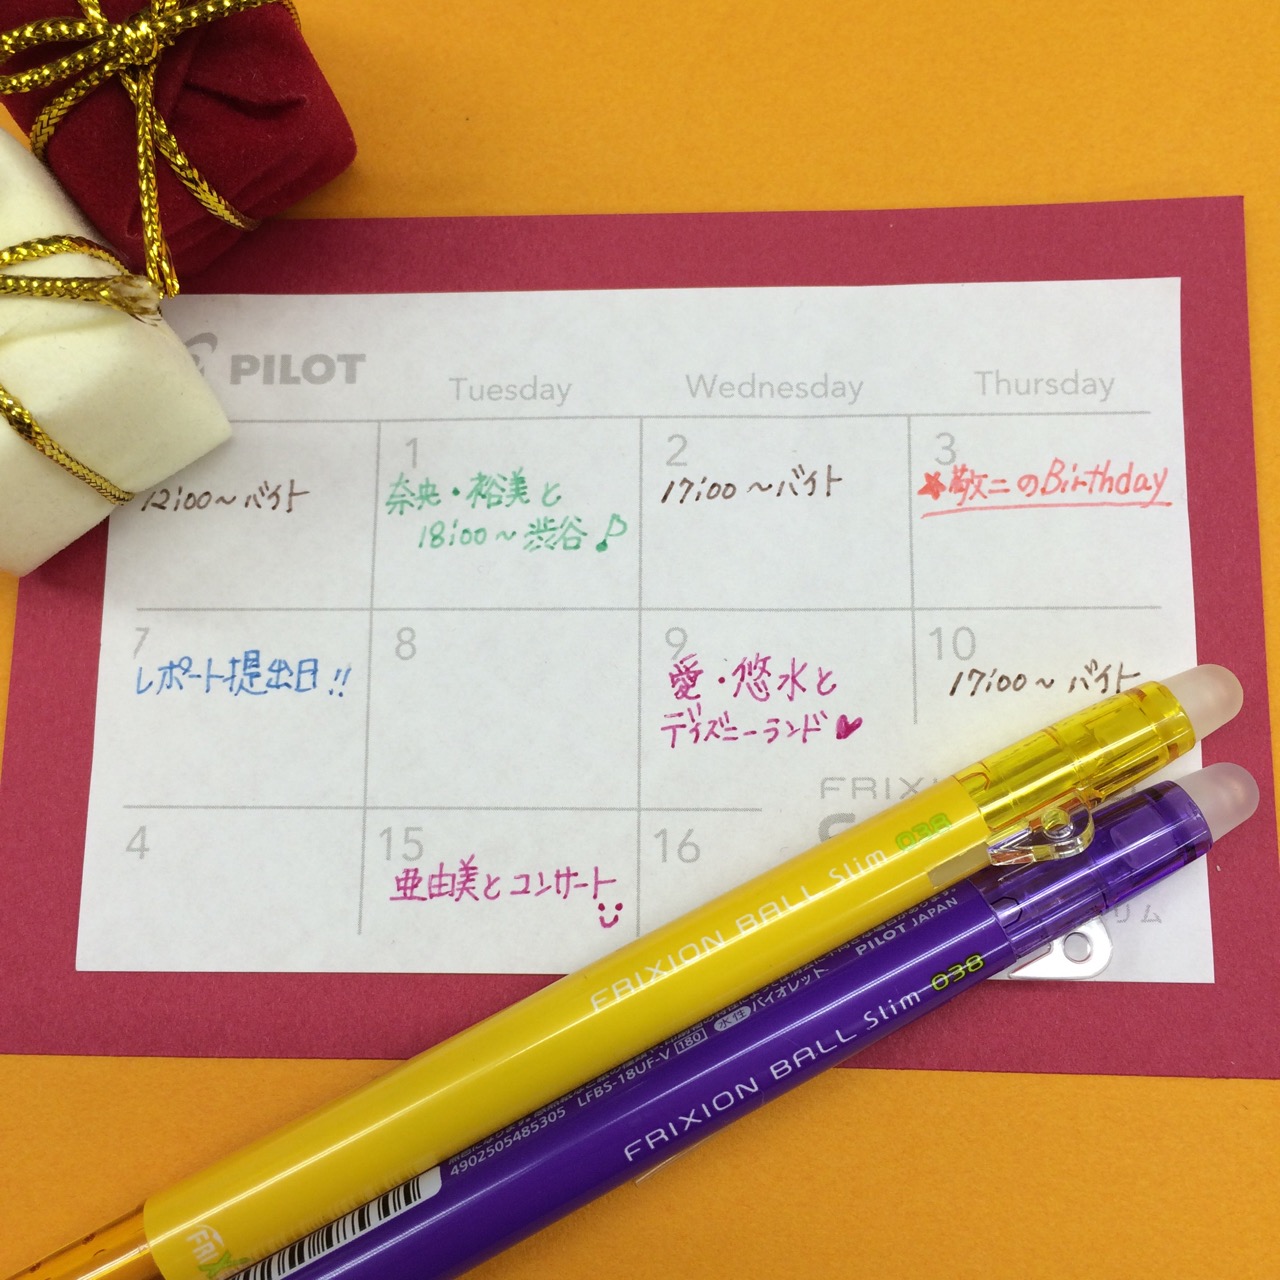 PILOT
Tuesday
Wednesday
Thursday
12:00～バイト
1
奈央・裕美と
18:00～渋谷♪
2
17:00～バイト
3
★敬二のBirthday
7
レポート提出日!!
8
9
愛・悠水と
ディズニーランド♥
10
17:00～バイト
4
15
亜由美とコンサート
16
FRIXION BALL Slim 038
FRIXION BALL Slim 038
PILOT JAPAN
水性 バイオレット
LFBS-18UF-V 180
4902505485305